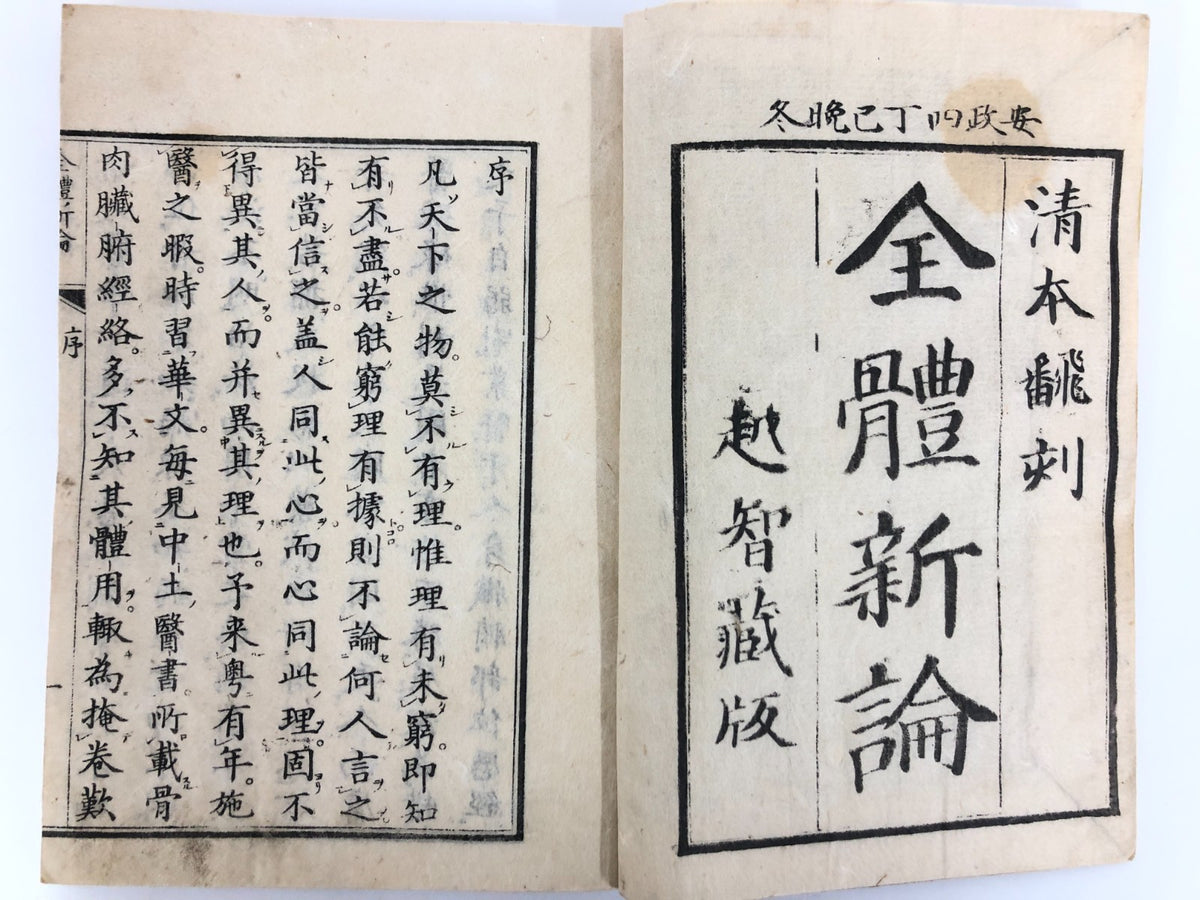 安政四丁巳晩冬
清本飜刻
全體新論
越智藏版
序
凡天下之物。莫不有理。惟理有未窮。即知
有不盡。若能窮理有據則不論何人言之
皆當信之。盖人同此心而心同此理。固不
得異其人。而并異其理也。予来粤有年。施
醫之暇。時習華文。每見中土醫書。所載骨
肉臟腑經絡。多不知其體用。輙為掩卷歎
全體新論
序
一